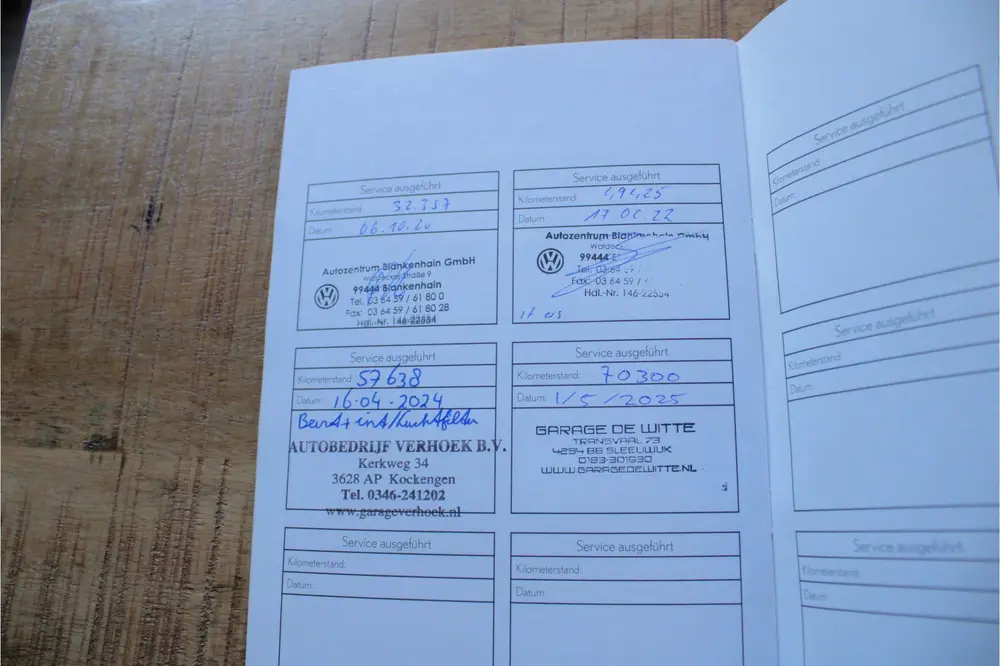 Service ausgeführt
Kilometerstand: 32.357
Datum: 06.10.20
Autozentrum Blankenhain GmbH
Waldecker Straße 9
99444 Blankenhain
Tel. 03 64 59 / 61 80 0
Fax: 03 64 59 / 61 80 28
Hdl.-Nr. 146-22554
Service ausgeführt
Kilometerstand:
Datum: 17.02.22
Autozentrum Blankenhain GmbH
99444
Tel. 03 64
Fax: 03 64 59 /
Hdl.-Nr. 146-22554
Service ausgeführt
Kilometerstand: 57638
Datum: 16-04-2024
AUTOBEDRIJF VERHOEK B.V.
Kerkweg 34
3628 AP Kockengen
Tel. 0346-241202
www.garageverhoek.nl
Service ausgeführt
Kilometerstand: 70300
Datum: 1/5/2025
GARAGE DE WITTE
TRANSVAAL 73
4254 BB SLEEUWIJK
0183-301930
WWW.GARAGEDEWITTE.NL
Service ausgeführt
Kilometerstand:
Datum:
Service ausgeführt
Kilometerstand:
Datum:
Service ausgeführt
Kilometerstand:
Datum:
Service ausgeführt
Kilometerstand:
Datum:
Service ausgeführt
Kilometerstand:
Datum: